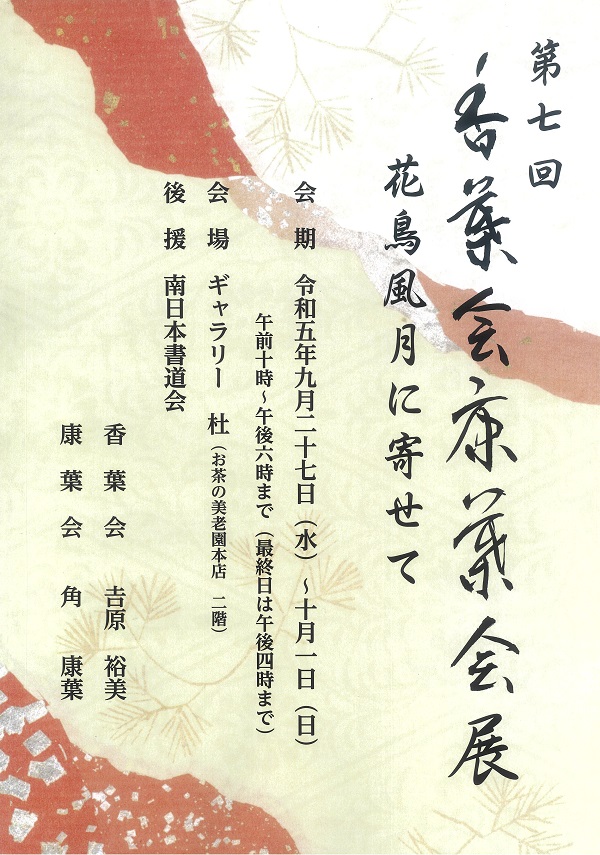 第七回
香葉会康葉会展
花鳥風月に寄せて
会期 令和五年九月二十七日（水）～十月一日（日）
午前十時～午後六時まで（最終日は午後四時まで）
会場 ギャラリー 杜（お茶の美老園本店 二階）
後援 南日本書道会
香葉会 𠮷原 裕美
康葉会 角 康葉